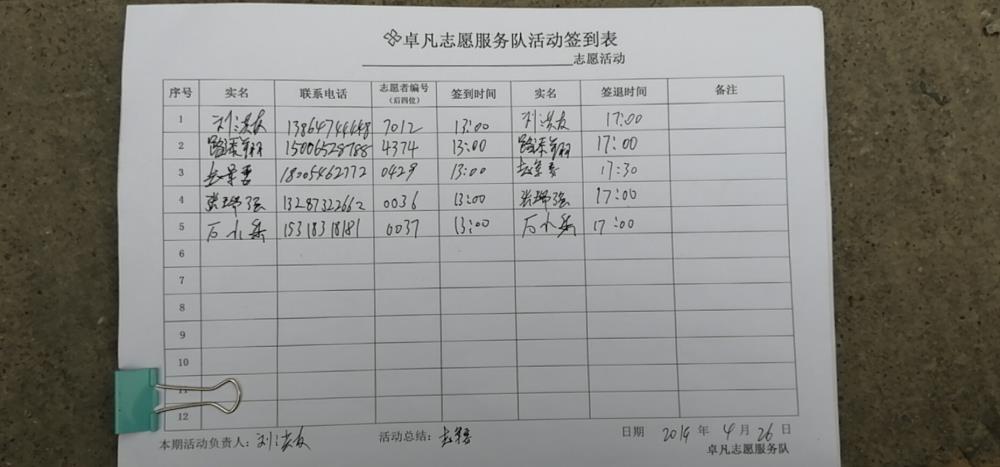 卓凡志愿服务队活动签到表
志愿活动
序号 实名 联系电话 志愿者编号（后四位） 签到时间 实名 签退时间 备注
1 刘洪友 13864744448 7012 13:00 刘洪友 17:00
2 15006528788 4374 13:00 17:00
3 18005462772 0429 13:00 17:30
4 张瑞强 13287322662 0036 13:00 张瑞强 17:00
5 万小 15318318181 0037 13:00 万小 17:00
6
7
8
9
10
11
12
本期活动负责人：刘洪友 活动总结： 日期 2019 年 4 月 26 日
卓凡志愿服务队